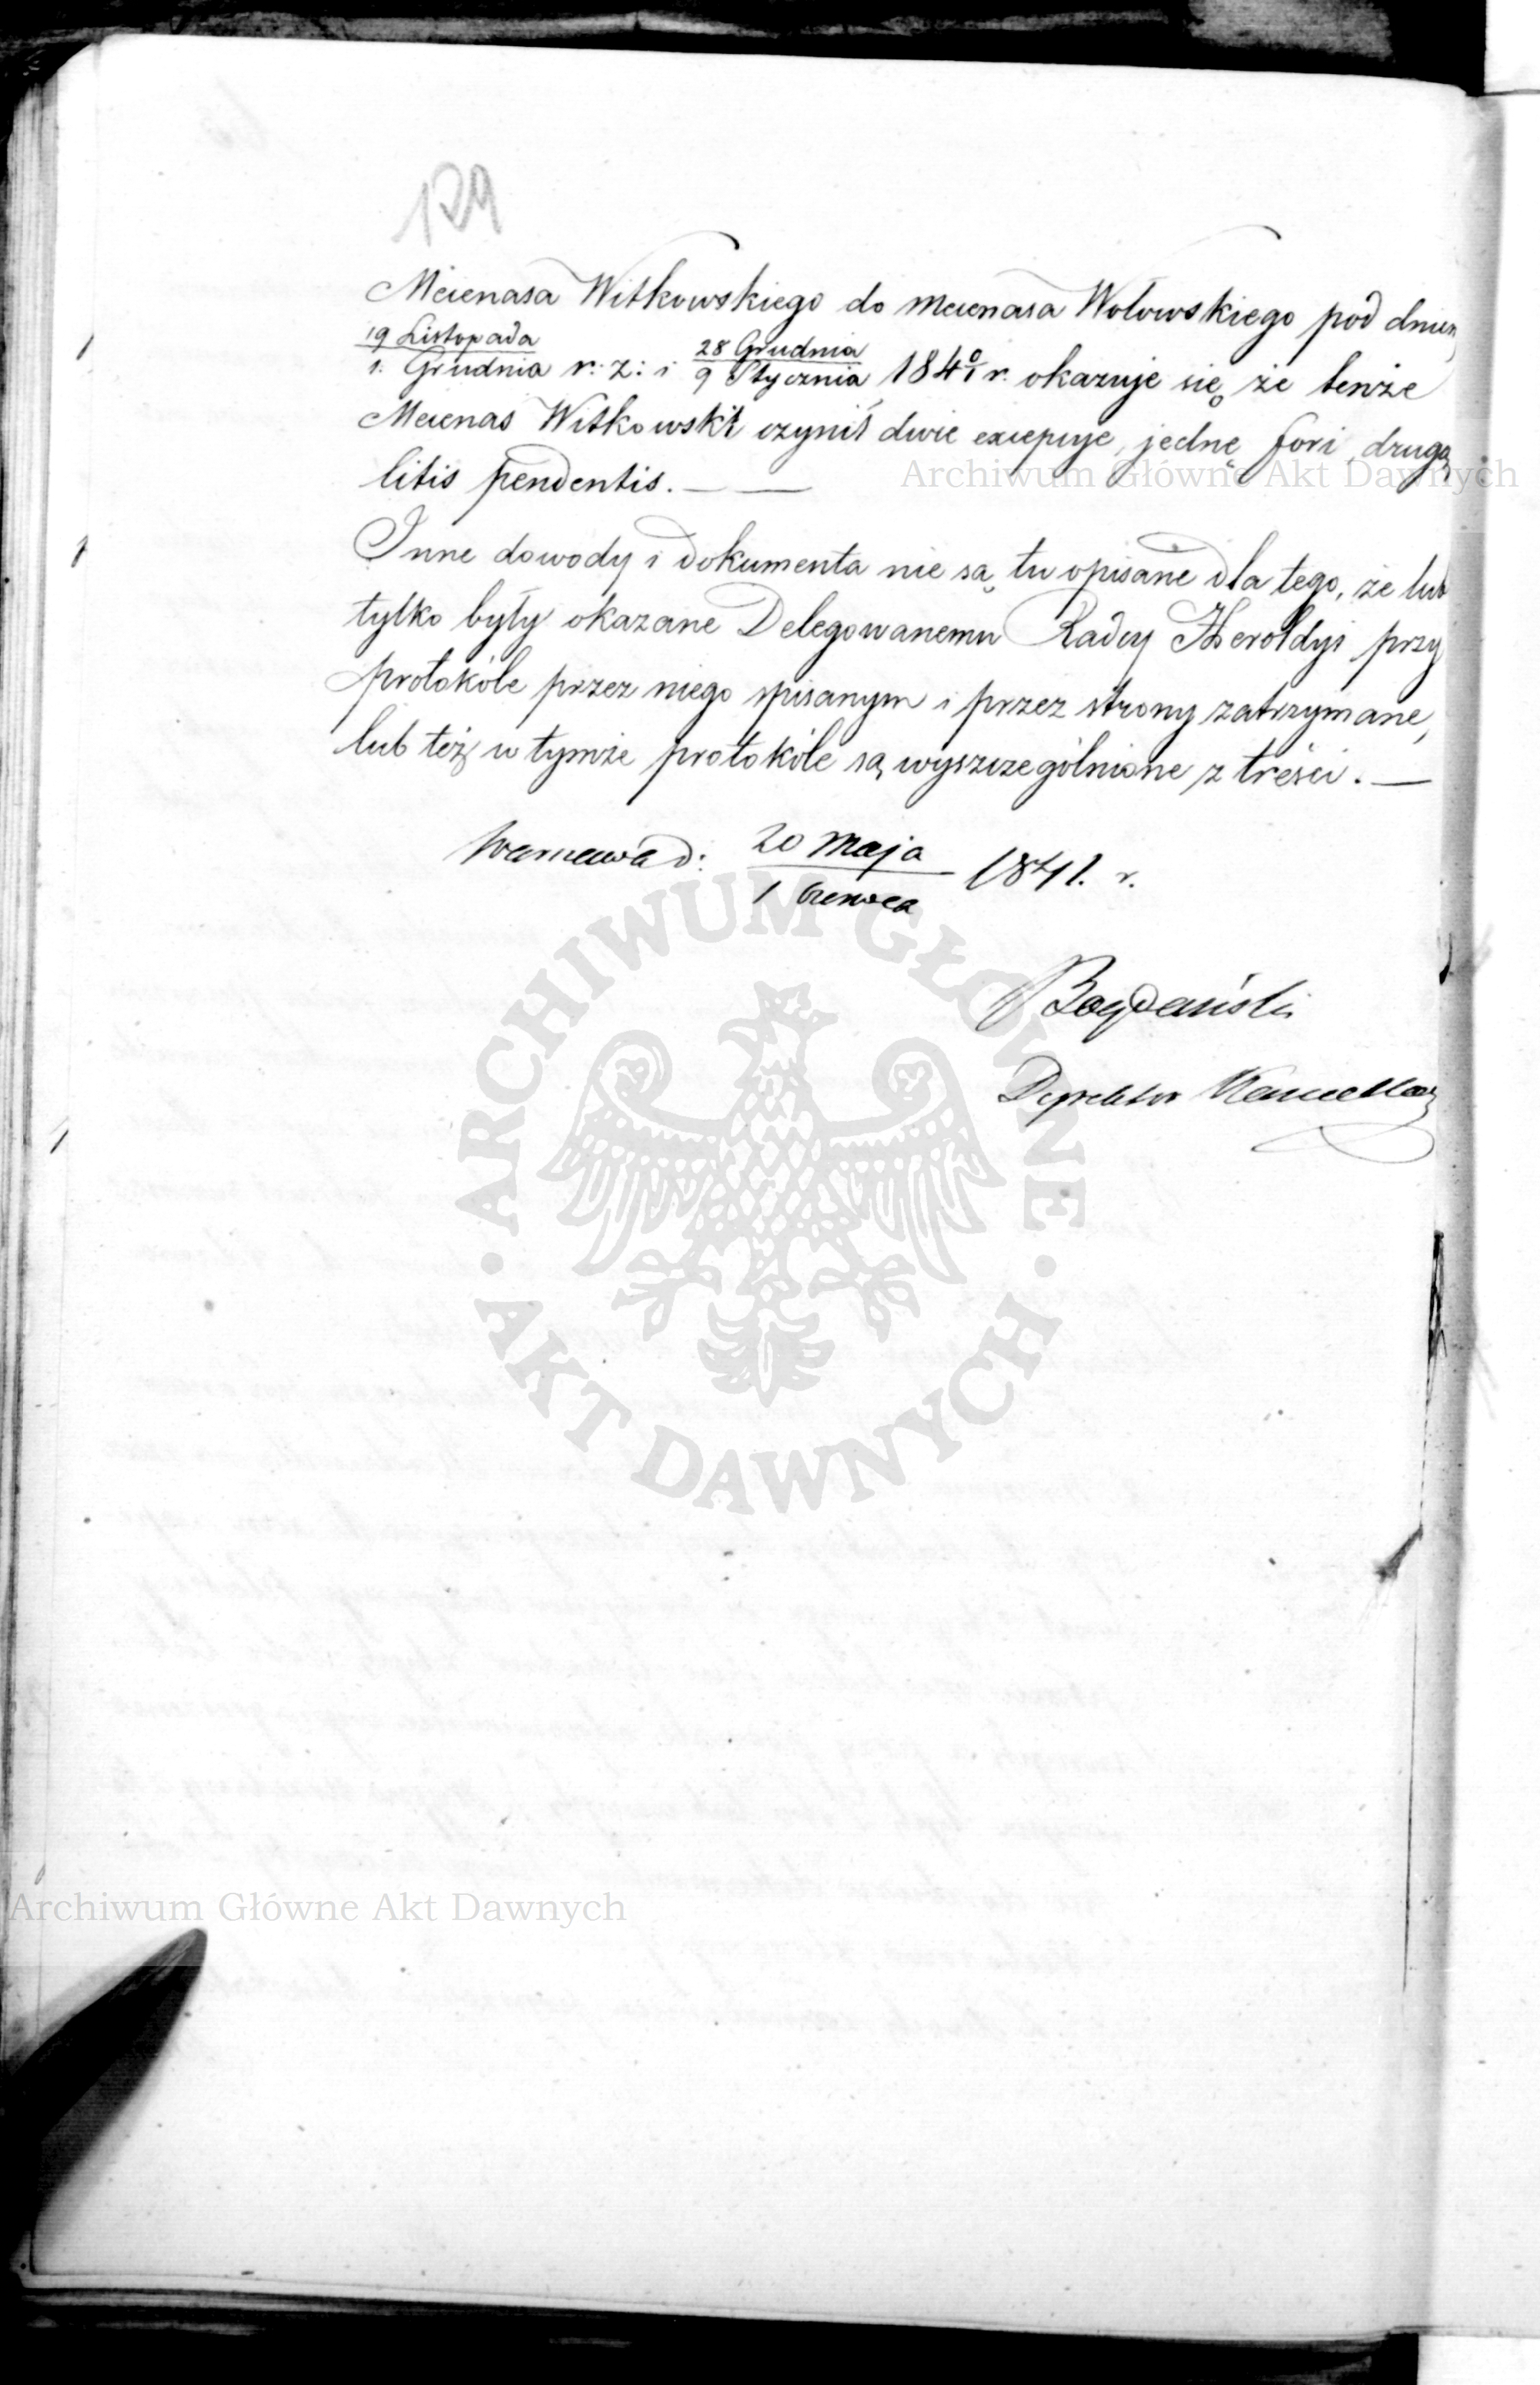 129
Mecenasa Witkowskiego do mecenasa Wołowskiego pod dniem
19 Listopada / 1. Grudnia r: z: i 28 Grudnia / 9 Stycznia 184 0/1 r. okazuje się, że tenże
Mecenas Witkowski czynił dwie excepcye, jednę fori, drugą
litis pendentis. — —
Inne dowody i dokumenta nie są tu opisane dla tego, że lub
tylko były okazane Delegowanemu Radcy Heroldyi przy
protokóle przez niego spisanym i przez strony zatrzymane,
lub też w tymże protokóle są wyszczególnione z treści. —
Warszawa d: 20 Maja / 1 Czerwca 1841. r.
Bogdański
Dyrektor Kancellaryi
Archiwum Główne Akt Dawnych
ARCHIWUM GŁÓWNE
· AKT DAWNYCH ·
Archiwum Główne Akt Dawnych